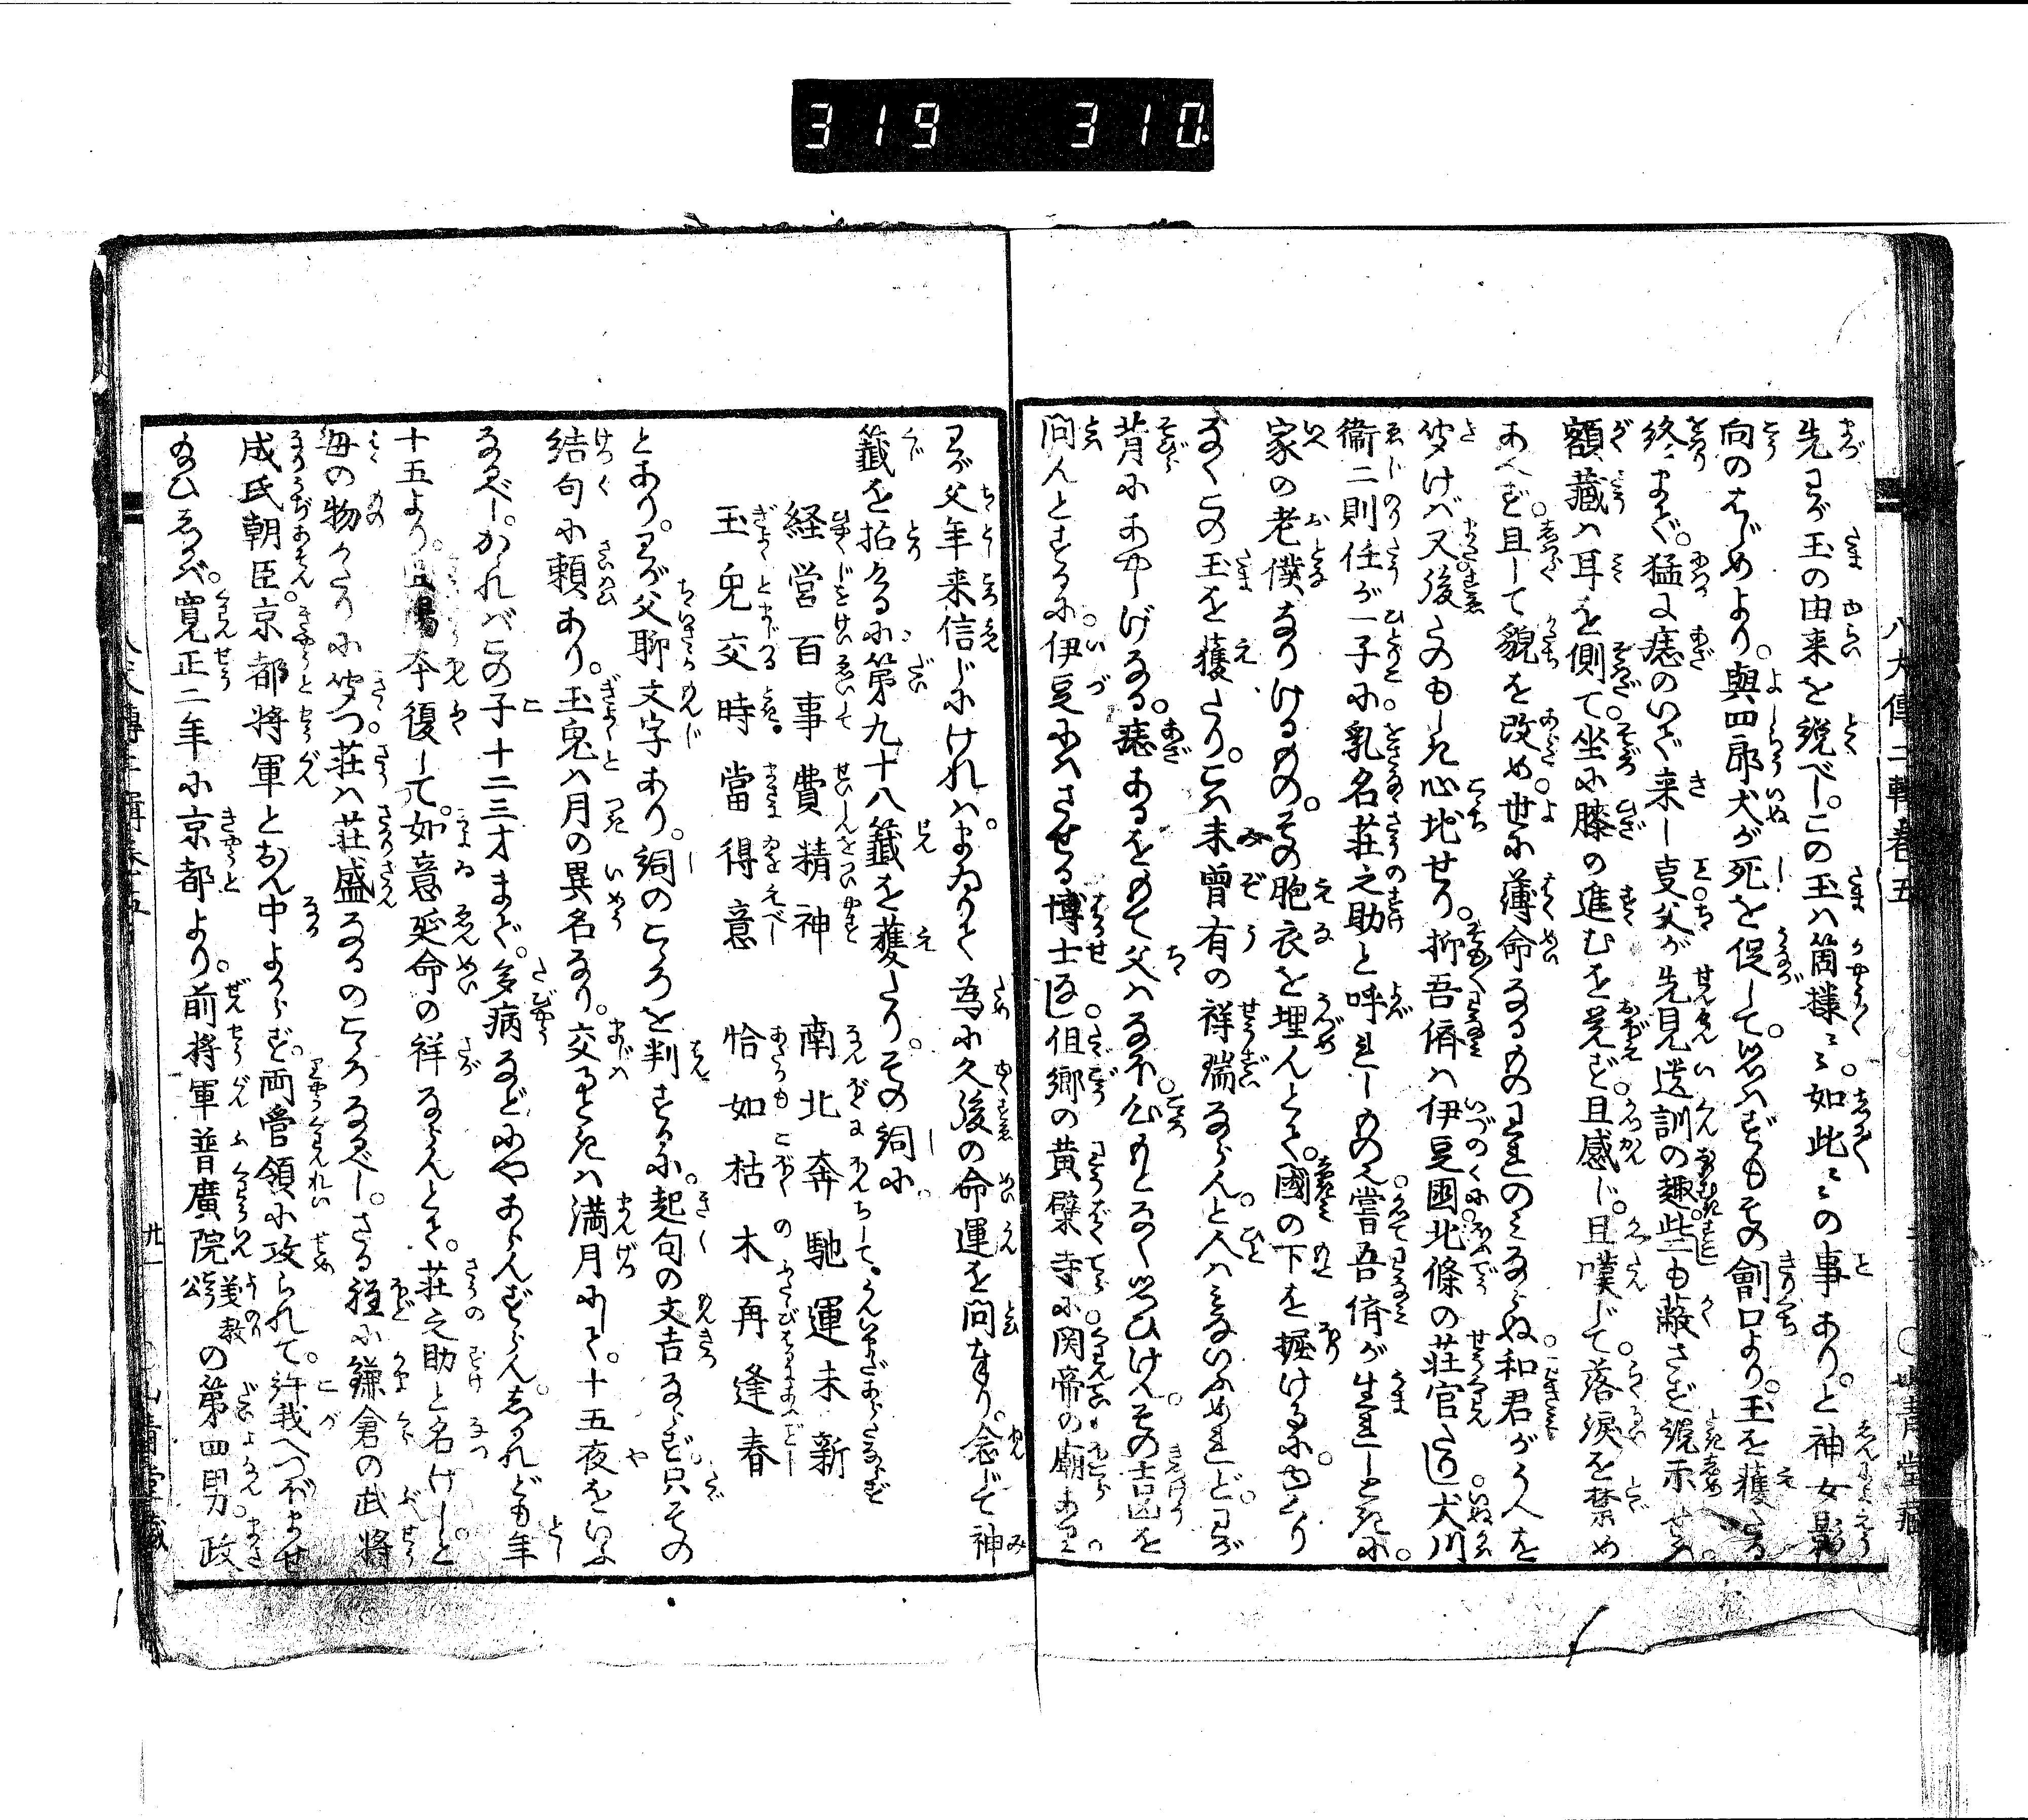 319 310
八犬傳二輯卷五
○山青堂藏
先わが玉の由来を説べし。この玉ハ箇様々々。如此々々の事ありと神女影
向のはじめより。與四郎犬が死を促して。思はずもその劊口より。玉を獲たる
終まで。猛に痣のいで来し事。父が先見遺訓の趣。些も蔽さず説示せバ。
額藏ハ耳を側て。坐に膝の進むを覚ず。且感じ。且嘆じて。落涙を禁め
あへず。且して貌を改め。世に薄命なるものわれのミならぬ和君がうへを
聞けバ又後たのもしき心地せり。抑吾儕ハ伊豆國北條の荘官たりし。犬川
衞二則任が一子に。乳名荘之助と呼れしもの也。嘗吾儕が生れしときに。
家の老僕なりけるもの。その胞衣を埋んとて。國の下を掘けるに。ゆくり
なくこの玉を獲たり。こハ未曽有の祥瑞ならんと人ハみないふめれど。わが
背にあやしげなる。痣あるをもて父ハなほ。心もとなく思ひけん。その吉凶を
問んとするに。伊豆にハさせる博士なし。但郷の黄檗寺に。関帝の廟あり。
わが父年来信じにければ。まゐりて為に久後の命運を問まうし。念じて神
籤を拈るに。第九十八籤を獲たり。その詞に。
経営百事費精神　南北奔馳運未新
玉兎交時當得意　恰如枯木再逢春
とあり。わが父聊文字あり。詞のこゝろを判ずるに。起句の文吉ならず。只その
結句に頼あり。玉兎ハ月の異名なり。交るときハ満月にして。十五夜をいふ
なるべし。かゝればこの子十二三才まで。多病などにやあらんずらん。しかれども年
十五より。陽本復して。如意延命の祥ならんとて。荘之助と名けしと
毎の物かたりに聞つ。荘ハ荘盛なるのこゝろなるべし。さる程に鎌倉の武將
成氏朝臣。京都將軍とおん中よからず。両管領に攻られて。許我へつぼませ
給ひしかバ。寛正二年に京都より。前將軍普廣院義教公の第四男。政
八犬傳二輯卷五
廿一
○山青堂藏